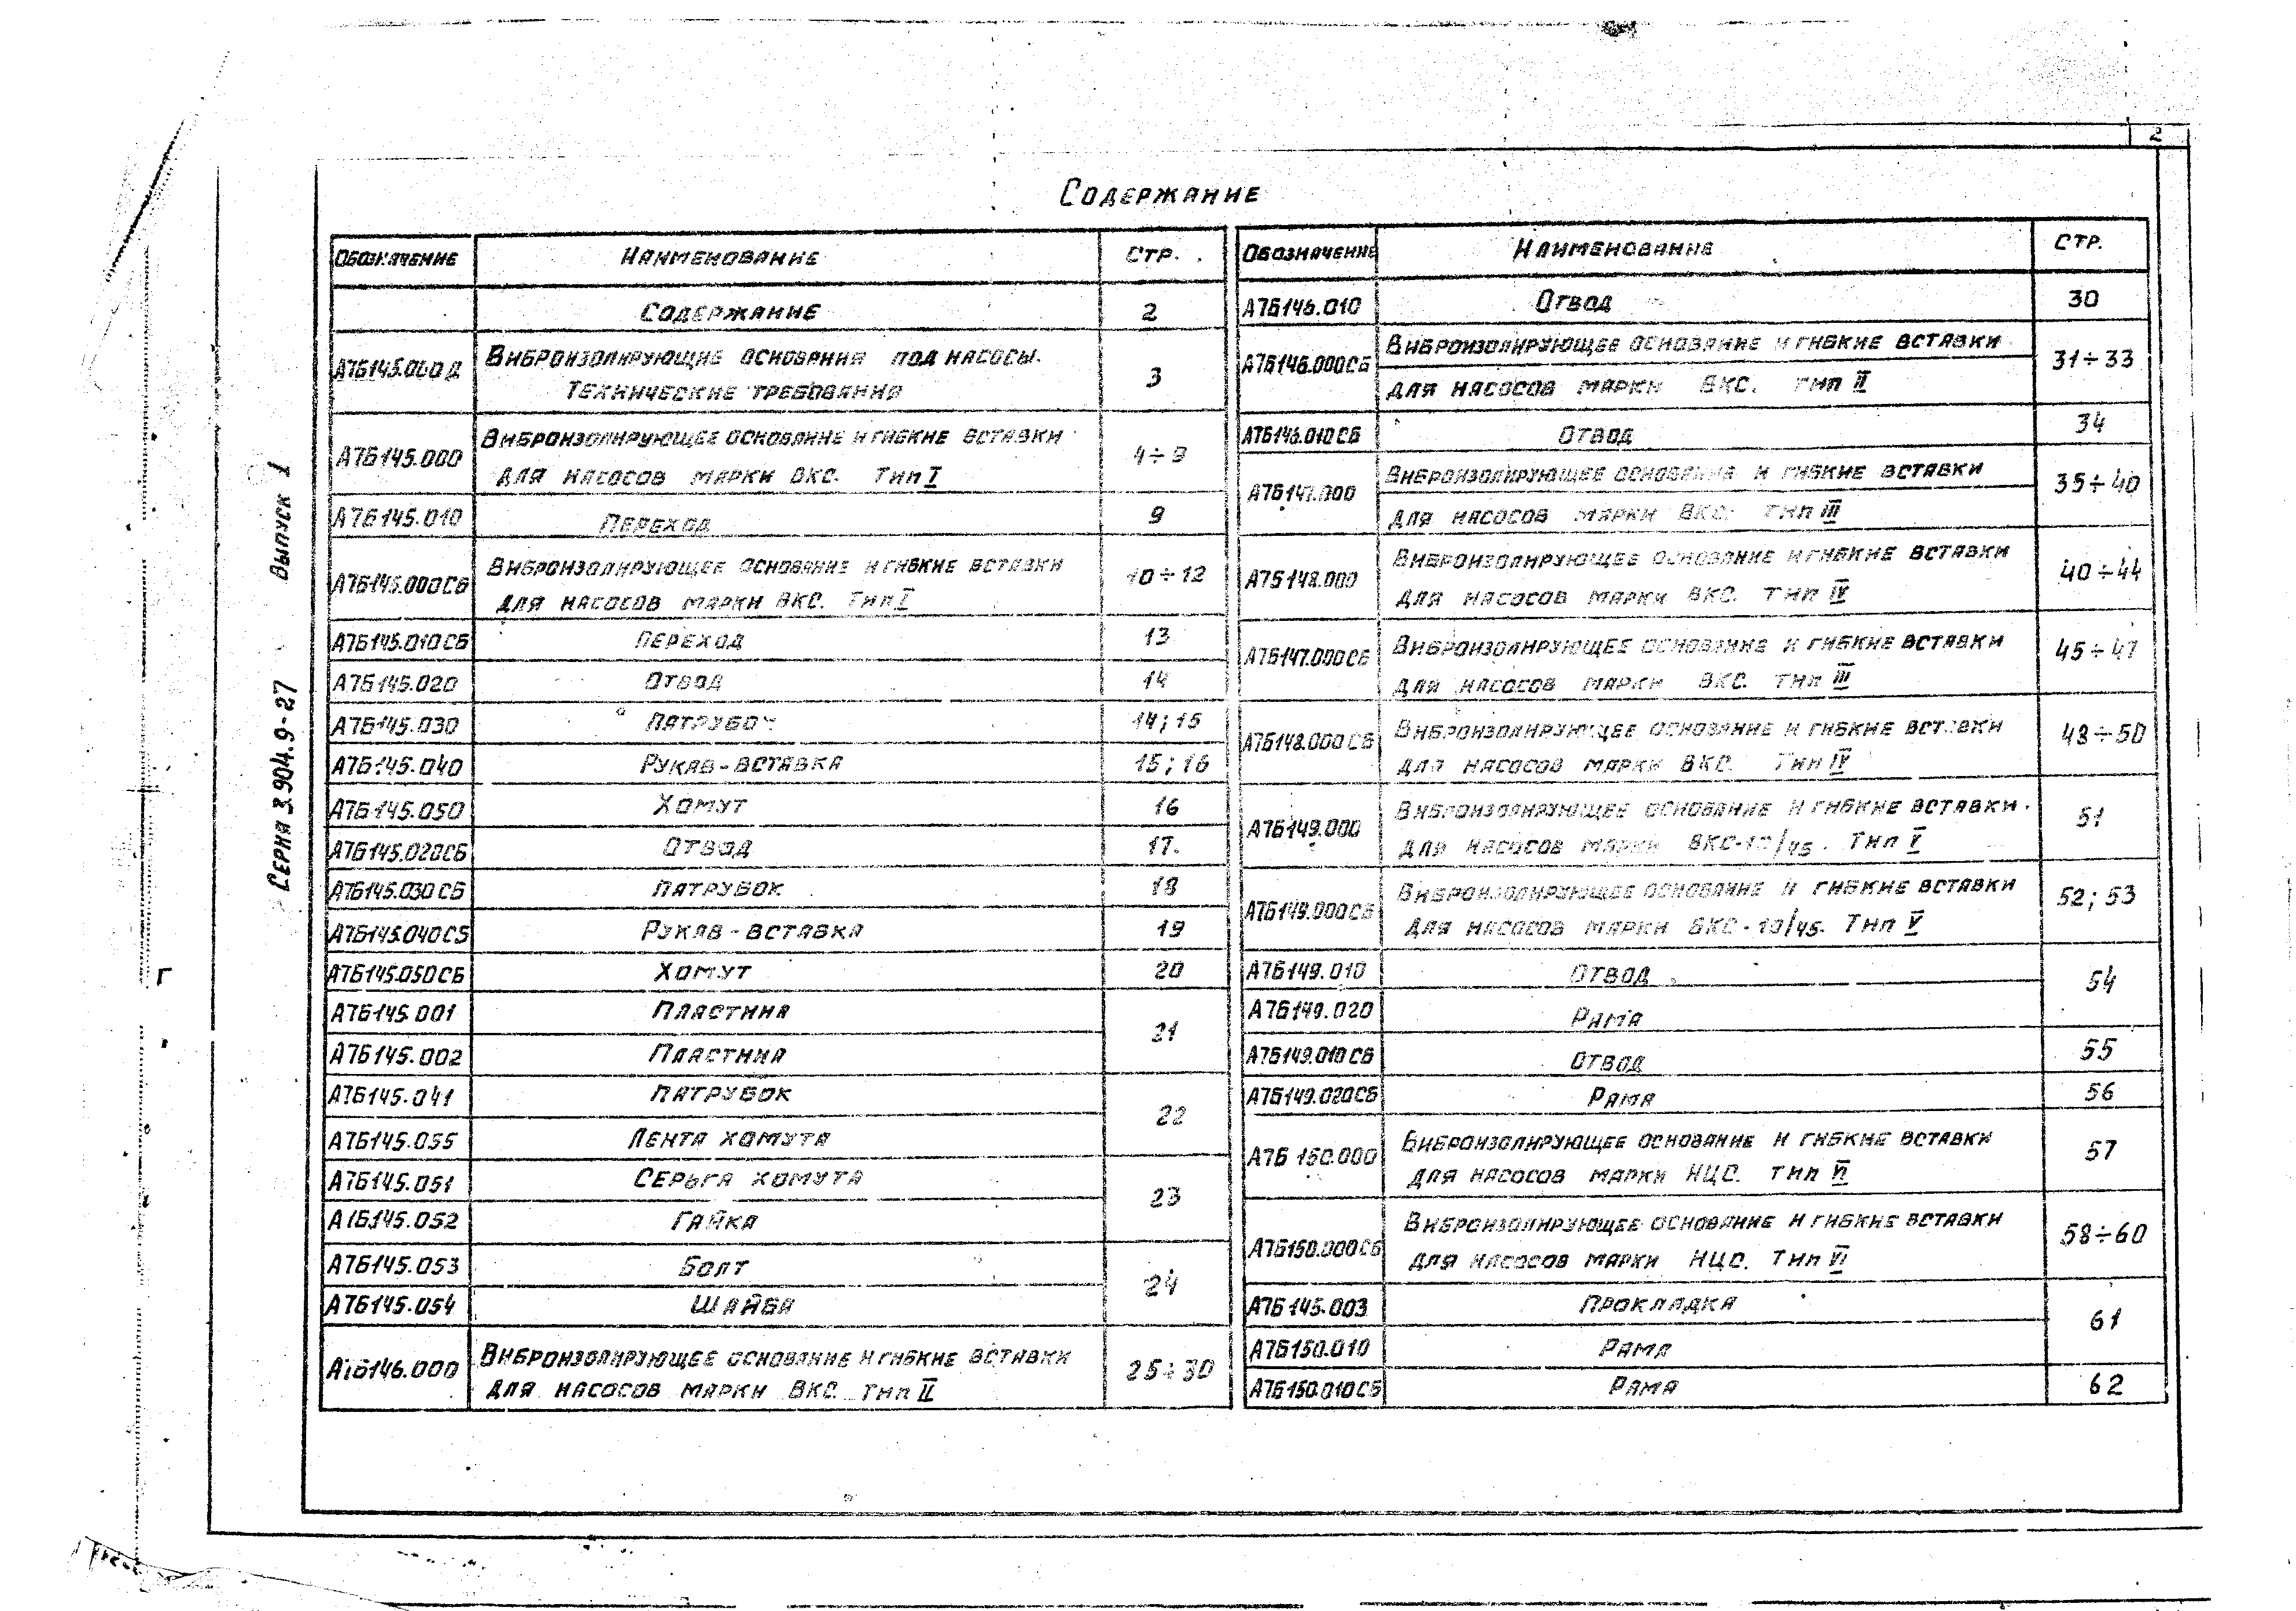 2
Содержание
Серия 3.904.9-27 Выпуск 1
Обозначение Наименование Стр.
Содержание 2
А7Б145.000Д Виброизолирующие основания под насосы. 3
Технические требования
А7Б145.000 Виброизолирующее основание и гибкие вставки 4÷9
для насосов марки ВКС. Тип I
А7Б145.010 Переход 9
А7Б145.000СБ Виброизолирующее основание и гибкие вставки 10÷12
для насосов марки ВКС. Тип I
А7Б145.010СБ Переход 13
А7Б145.020 Отвод 14
А7Б145.030 Патрубок 14; 15
А7Б145.040 Рукав-вставка 15; 16
А7Б145.050 Хомут 16
А7Б145.020СБ Отвод 17.
А7Б145.030СБ Патрубок 18
А7Б145.040СБ Рукав-вставка 19
А7Б145.050СБ Хомут 20
А7Б145.001 Пластина 21
А7Б145.002 Пластина
А7Б145.041 Патрубок 22
А7Б145.055 Лента хомута
А7Б145.051 Серьга хомута 23
А7Б145.052 Гайка
А7Б145.053 Болт 24
А7Б145.054 Шайба
А7Б146.000 Виброизолирующее основание и гибкие вставки 25÷30
для насосов марки ВКС. тип II
Обозначение Наименование Стр.
А7Б146.010 Отвод 30
А7Б146.000СБ Виброизолирующее основание и гибкие вставки 31÷33
для насосов марки ВКС. тип II
А7Б146.010СБ Отвод 34
А7Б147.000 Виброизолирующее основание и гибкие вставки 35÷40
для насосов марки ВКС. тип III
А7Б148.000 Виброизолирующее основание и гибкие вставки 40÷44
для насосов марки ВКС. тип IV
А7Б147.000СБ Виброизолирующее основание и гибкие вставки 45÷47
для насосов марки ВКС. тип III
А7Б148.000СБ Виброизолирующее основание и гибкие вставки 48÷50
для насосов марки ВКС. Тип IV
А7Б149.000 Виброизолирующее основание и гибкие вставки 51
для насосов марки ВКС-10/45. Тип V
А7Б149.000СБ Виброизолирующее основание и гибкие вставки 52; 53
для насосов марки ВКС-10/45. Тип V
А7Б149.010 Отвод 54
А7Б149.020 Рама
А7Б149.010СБ Отвод 55
А7Б149.020СБ Рама 56
А7Б150.000 Виброизолирующее основание и гибкие вставки 57
для насосов марки НЦС. тип VI
А7Б150.000СБ Виброизолирующее основание и гибкие вставки 58÷60
для насосов марки НЦС. Тип VI
А7Б145.003 Прокладка 61
А7Б150.010 Рама
А7Б150.010СБ Рама 62